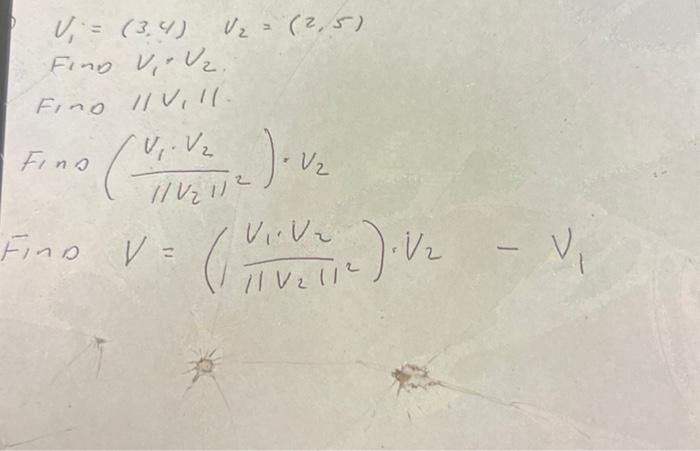 V₁ = (3,4) V₂ = (2,5)
Find V₁ · V₂.
Find ||V₁||.
Find (V₁·V₂ / ||V₂||²) · V₂
Find V = (V₁·V₂ / ||V₂||²) · V₂ - V₁